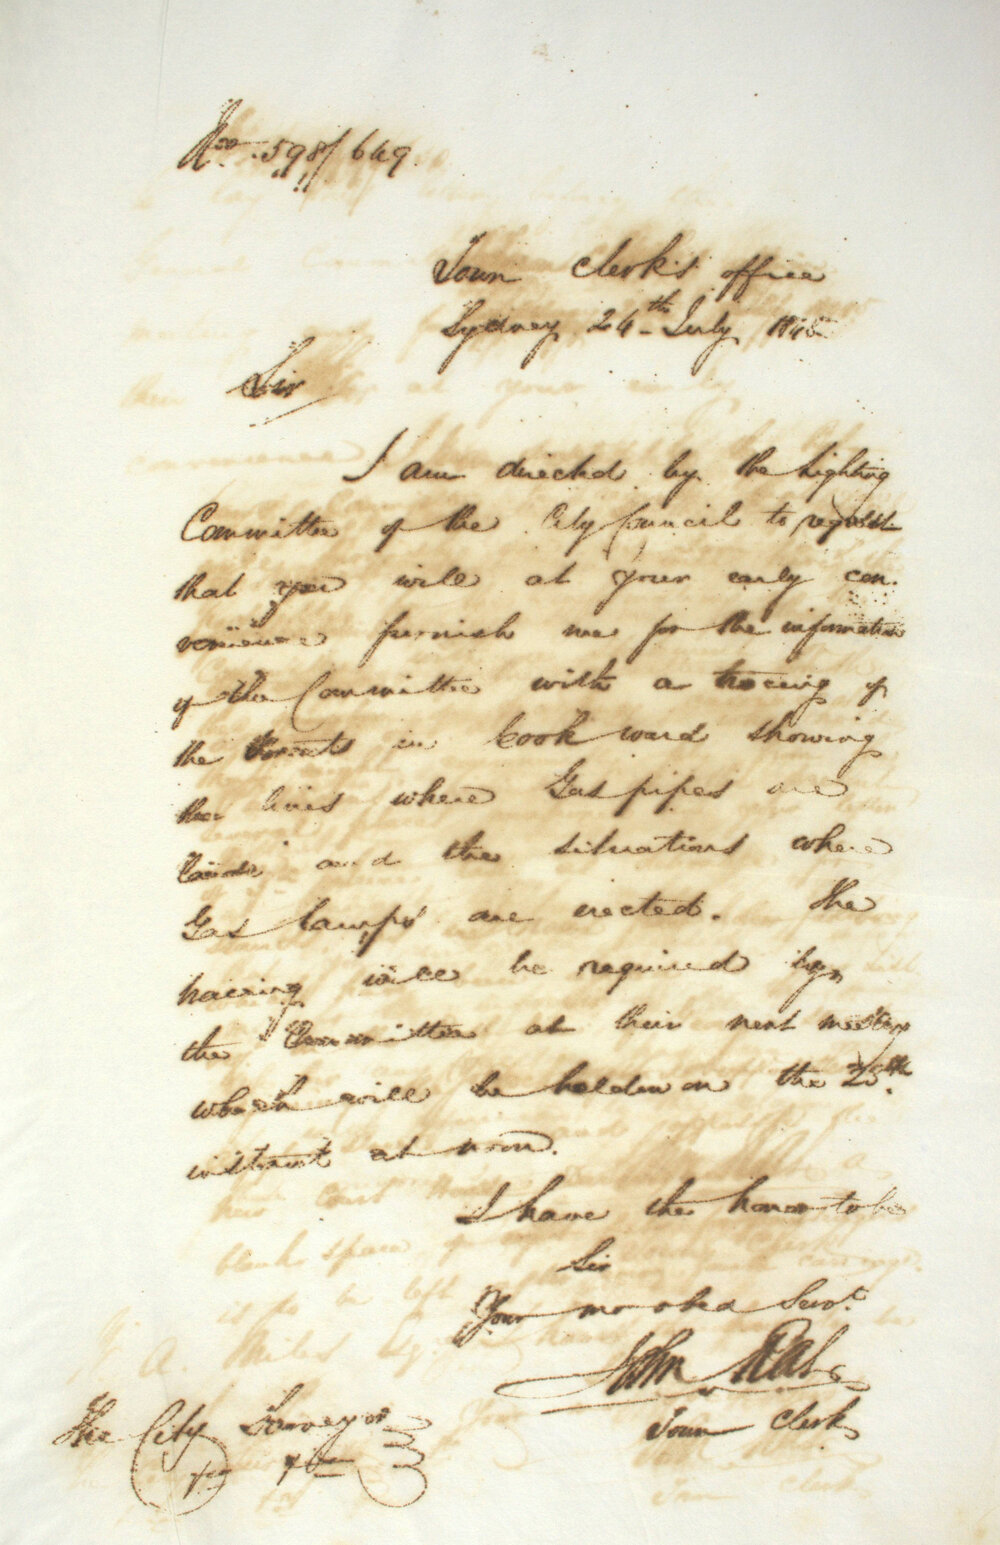 No. 598/649.
Town Clerk's office
Sydney 24th July 184
Sir
I am directed by the Lighting
Committee of the City Council to request
that you will at your early con.
venience furnish me for the information
of the Committee with a tracing of
the Streets in Cook ward showing
the lines where Gas pipes are
laid and the situations where
Gas lamps are erected. The
tracing will be required by
the Committee at their next meeting
which will be holden on the 25th
instant at noon.
I have the honor to be
Sir
Your mo obed Servt.
John
Town Clerk
The City Surveyor